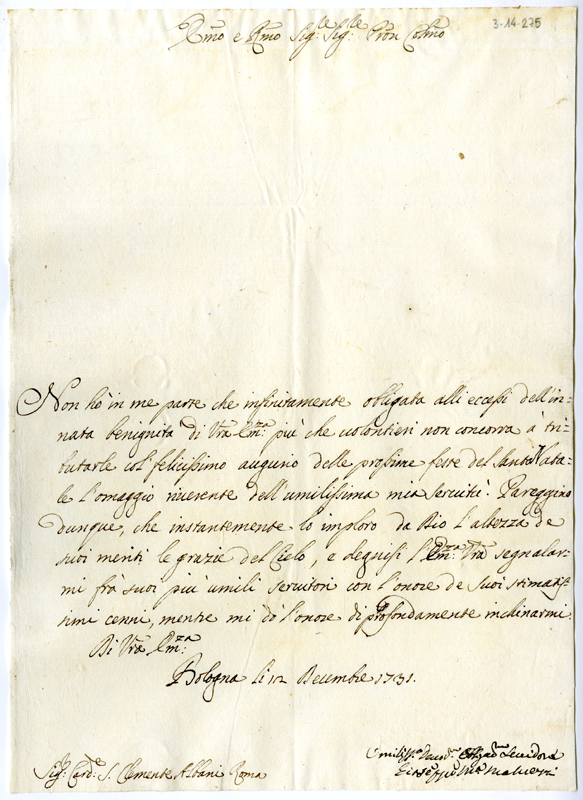 3-14-275
Emo e Rmo Sig:re Sig:re Pron Colmo
Non hò in me parte che infinitamente obligata alli eccessi dell'in-
nata benignità di Vrã Em:za più che uolontieri non concorra à tri-
butarle col' felicissimo augurio delle prossime feste del Santo Nata-
le l'omaggio riuerente dell'umilissima mia seruitù. Pareggino
dunque, che instantemente lo imploro da Dio l'altezza de
suoi meriti le grazie del Cielo, e degnisi l'Em:za Vrã segnalar-
mi frà suoi più umili seruitori con l'onore de suoi stimatis-
simi cenni, mentre mi dò l'onore di profondamente inchinarmi.
Di Vrã Em:za
Bologna li 12 Decembre 1731.
Umiliss:o Deuot:mo Obligat:mo Seruidore
Giuseppe Ma: Maluezzi
Sig:r Card:e S. Clemente Albani Roma